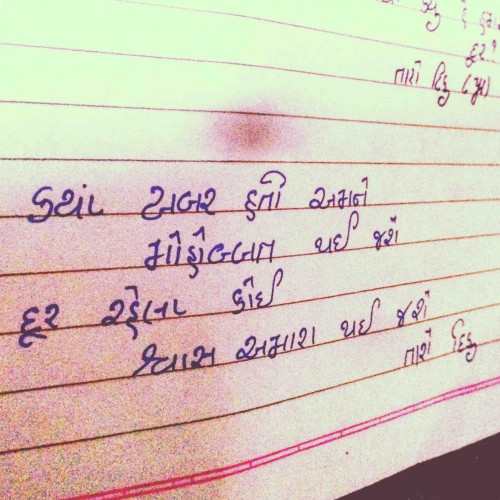 દૂર?
તારો દિકુ
ક્યાં ખબર હતી અમને
મોહોબ્બત થઈ જશે
દૂર રહેલા કોઈ
શ્વાસ અમારા થઈ જશે
તારો દિકુ